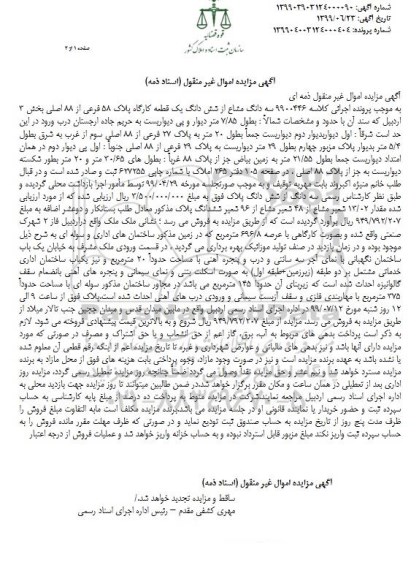 شماره آگهی: ۱۳۹۹۰۳۹۰۳۱۲۴۰۰۰۰۹۰
تاریخ آگهی: ۱۳۹۹/۰۶/۲۳
شماره پرونده: ۱۳۹۹۰۴۰۰۳۱۲۴۰۰۰۴۰۴
قوه قضائیه
سازمان ثبت اسناد و املاک کشور
صفحه ۱ از ۲
آگهی مزایده اموال غیر منقول (اسناد ذمه)
آگهی مزایده اموال غیر منقول ذمه ای
به موجب پرونده اجرائی کلاسه ۹۹۰۰۴۴۶ سه دانگ مشاع از شش دانگ یک قطعه کارگاه پلاک ۵۸ فرعی از ۸۸ اصلی بخش ۳
اردبیل که سند آن با حدود و مشخصات شمالاً: بطول ۷/۸۵ متر دیوار و پی دیواریست به حریم جاده ارجستان درب ورود در این
حد است شرقاً : اول دیواربدیوار دوم دیواریست جمعاً بطول ۲۰ متر به پلاک ۲۷ فرعی از ۸۸ اصلی سوم از غرب به شرق بطول
۵/۴ متر بدیوار پلاک مزبور چهارم بطول ۲۹ متر دیواریست به پلاک ۲۹ فرعی از ۸۸ اصلی جنوباً : اول پی دیوار دوم در همان
امتداد دیواریست جمعا بطول ۲۱/۵۵ متر به زمین بیاض جز از پلاک ۸۸ غرباً : بطول های ۳۰/۶۵ متر و ۲۰ متر بطور شکسته
دیواریست به جز از پلاک ۸۸ اصلی ، در صفحه ۱۰۵ دفتر ۲۶۵ املاک با شماره چاپی ۶۷۷۲۵۵ ثبت و صادر شده است و در قبال
طلب خانم منیژه اکبروند بابت مهریه توقیف و به موجب صورتجلسه مورخه ۹۹/۰۴/۲۹ توسط مأمور اجرا بازداشت محلی گردیده و
طبق نظر کارشناس رسمی سه دانگ از شش دانگ پلاک فوق به مبلغ ۳/۵۰۰/۰۰۰/۰۰۰ ریال ارزیابی شده که از مورد ارزیابی
شده مقدار ۱۳/۰۲ شعیر مشاع از ۴۸ شعیر مشاع از ۹۶ شعیر ششدانگ پلاک مذکور معادل طلب بستانکار و دوعشر اضافه به مبلغ
۹۴۹/۷۹۲/۲۰۷ ریال برآورد گردیده است که ازطریق مزایده به فروش می رسد ؛ نشانی ملک ملک واقع دراردبیل فاز ۲ شهرک
صنعتی واقع شده و بصورت کارگاهی با عرصه ۶۹۶/۸ مترمربع که در زمین مذکور ساختمان های اداری وسوله ای به شرح ذیل
موجود بوده و در زمان بازدید در صنف تولید موزائیک بهره برداری می گردید ، در قسمت ورودی ملک مشرف به خیابان یک باب
ساختمان نگهبانی با نمای آجر سه سانتی و درب و پنجره آهنی با مساحت حدوداً ۲۰ مترمربع و نیز یکباب ساختمان اداری
خدماتی مشتمل بر دو طبقه (زیرزمین+طبقه اول) به صورت اسکلت بتنی و نمای سیمانی و پنجره های آهنی باانضمام سقف
گالوانیزه احداث شده است که زیربنای آن حدوداً ۱۴۵ مترمربع می باشد در مجاور ساختمان مذکور سوله ای با مساحت حدوداً
۳۷۵ مترمربع با مهاربندی فلزی و سقف آزبست سیمانی و ورودی درب های آهنی احداث شده است.پلاک فوق از ساعت ۹ الی
۱۲ روز شنبه مورخ ۹۹/۰۷/۱۲ در اداره اجرای اسناد رسمی اردبیل واقع در مابین میدان قدس و میدان ججین جنب تالار میلاد از
طریق مزایده به فروش می رسد. مزایده از مبلغ ۹۴۹/۷۹۲/۲۰۷ ریال شروع و به بالاترین قیمت پیشنهادی فروخته می شود. لازم
به ذکر است پرداخت بدهی های مربوط به آب، برق، گاز اعم از حق انشعاب و یا حق اشتراک و مصرف در صورتی که مورد
مزایده دارای آنها باشد و نیز بدهی های مالیاتی و عوارض شهرداری و غیره تا تاریخ مزایده اعم از اینکه رقم قطعی آن معلوم شده
یا نشده باشد به عهده برنده مزایده است و نیز در صورت وجود مازاد، وجوه پرداختی بابت هزینه های فوق از محل مازاد به برنده
مزایده مسترد خواهد شد و نیم عشر و حق مزایده نقداً وصول می گردد ضمناً چنانچه روز مزایده تعطیل رسمی گردد، مزایده روز
اداری بعد از تعطیلی در همان ساعت و مکان مقرر برگزار خواهد شد؛در ضمن طالبین میتوانند تا روز مزایده جهت بازدید محلی به
اداره اجرای اسناد رسمی اردبیل مراجعه نمایند.شرکت در مزایده منوط به پرداخت ده درصد از مبلغ پایه کارشناسی به حساب
سپرده ثبت و حضور خریدار یا نماینده قانونی او در جلسه مزایده می باشد.برنده مزایده مکلف است مابه التفاوت مبلغ فروش را
ظرف مدت پنج روز از تاریخ مزایده به حساب صندوق ثبت تودیع نماید و در صورتی که ظرف مهلت مقرر مانده فروش را به
حساب سپرده ثبت واریز نکند مبلغ مزبور قابل استرداد نبوده و به حساب خزانه واریز خواهد شد و عملیات فروش از درجه اعتبار
آگهی مزایده اموال غیر منقول (اسناد ذمه)
ساقط و مزایده تجدید خواهد شد./
مهری کشفی مقدم – رئیس اداره اجرای اسناد رسمی